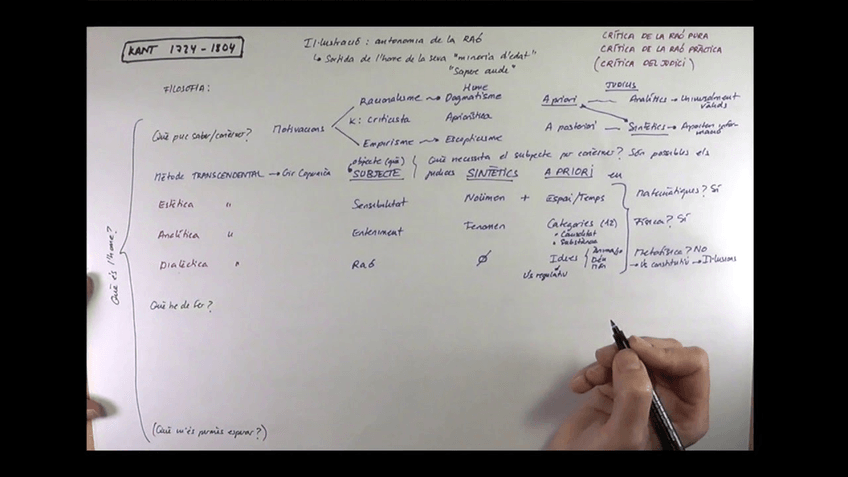 KANT 1724-1804
Il·lustració: autonomia de la RAÓ
↳ Sortida de l'home de la seva "minoria d'edat"
"Sapere aude"
CRÍTICA DE LA RAÓ PURA
CRÍTICA DE LA RAÓ PRÀCTICA
(CRÍTICA DEL JUDICI)
FILOSOFIA:
Què puc saber/conèixer? Motivacions
Racionalisme → Dogmatisme
Hume
K: Criticista Apriorística
Empirisme → Escepticisme
JUDICIS
A priori — Analítics → Universalment vàlids
A posteriori — Sintètics → Aporten informació
Mètode TRANSCENDENTAL → Gir Copernicà
objecte (què)
SUBJECTE
Què necessita el subjecte per conèixer? Són possibles els
judicis SINTÈTICS A PRIORI en
Estètica " Sensibilitat Noümen + Espai/Temps
Matemàtiques? Sí
Analítica " Enteniment Fenomen Categories (12)
• Causalitat
• Substància
Física? Sí
Dialèctica " RAÓ ∅ Idees
Ànima
Déu
Món
Ús regulatiu
Metafísica? No
→ Ús constitutiu → Il·lusions
Què és l'home?
Què he de fer?
(Què m'és permès esperar?)